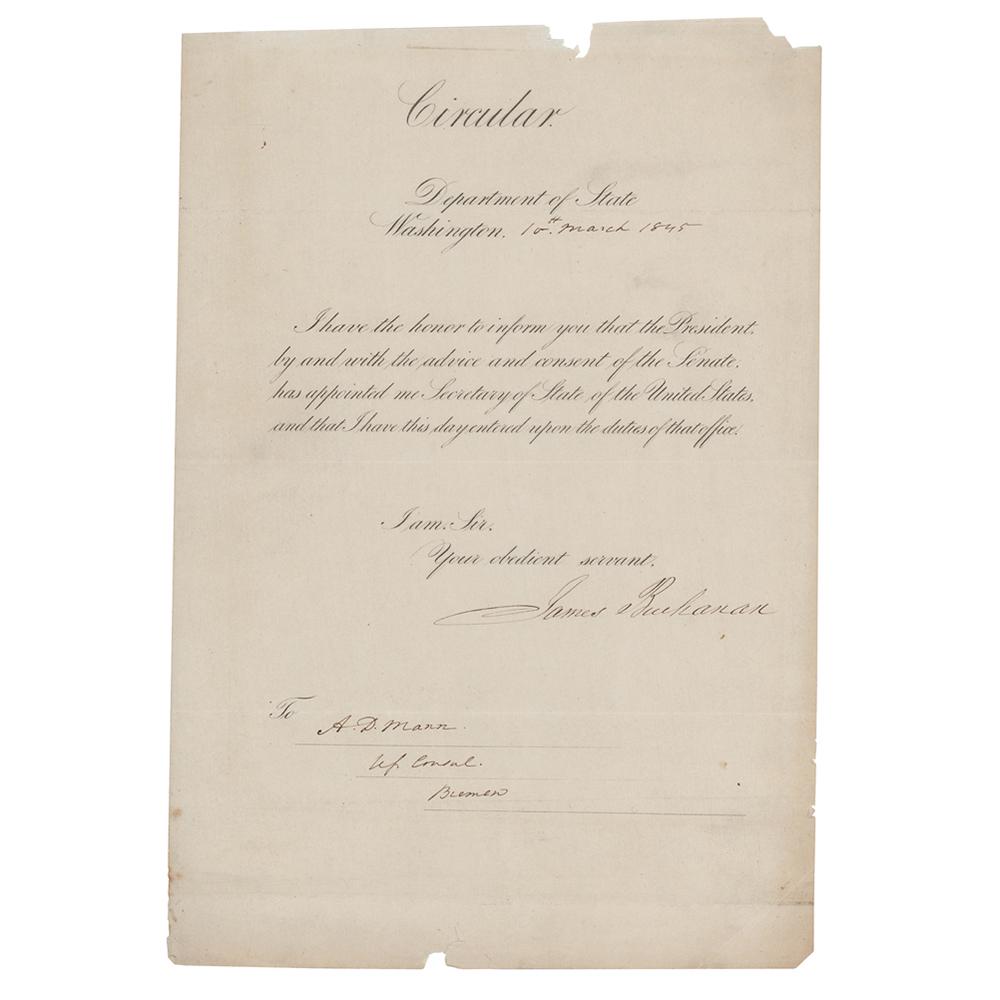 Circular.
Department of State
Washington. 10th March 1845
I have the honor to inform you that the President,
by and with the advice and consent of the Senate,
has appointed me Secretary of State, of the United States,
and that I have this day entered upon the duties of that office.
I am, Sir,
Your obedient servant,
James Buchanan
To
A. D. Mann.
US. Consul.
Bremen